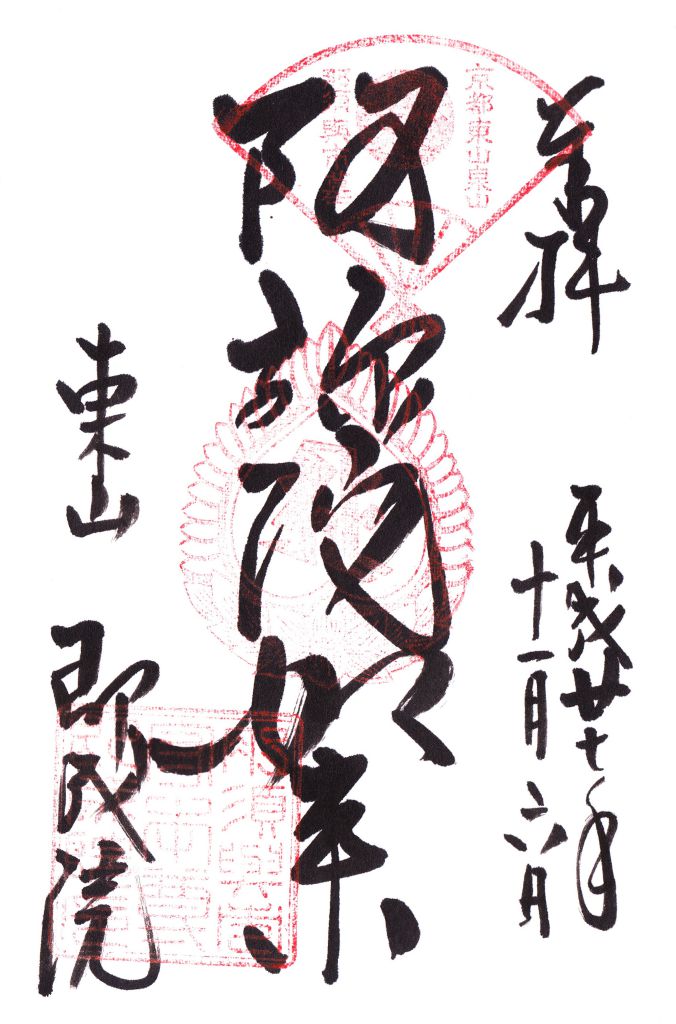 奉拝
平成廿七年
十一月六日
京都東山泉山
阿弥陀如来
東山
即成院